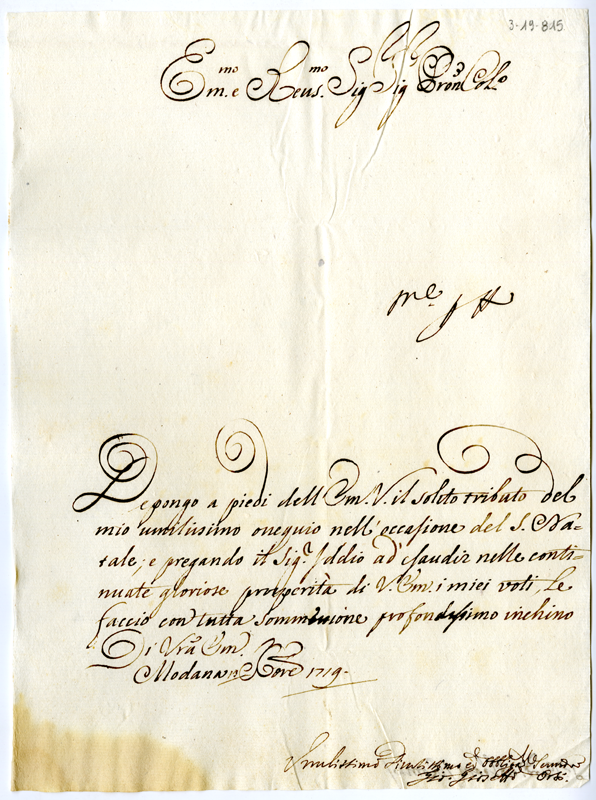 3-19-815
Em.mo e Reus.mo Sig Sig Pron Col.o
Depongo a piedi dell'Em.V. il solito tributo del
mio umilisimo ossequio nell'occasione del S. Na-
tale; e pregando il Sig.r Iddio ad' esaudir nelle conti-
nuate gloriose prosperità di V. Em. i miei voti, le
faccio con tutta sommissione profondissimo inchino
Di Vrã Em.
Modana Xbre 1719
Umilissimo Divotissimo ed Seruo
Gio: Gioseffo